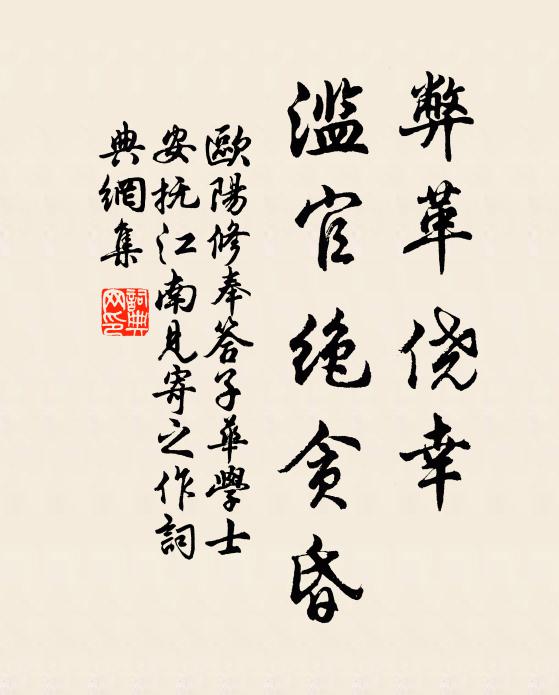 弊革侥幸
滥官绝贪昏
歐陽修奉答子華學士
安抚江南见寄之作詞
典網集
詞典网印